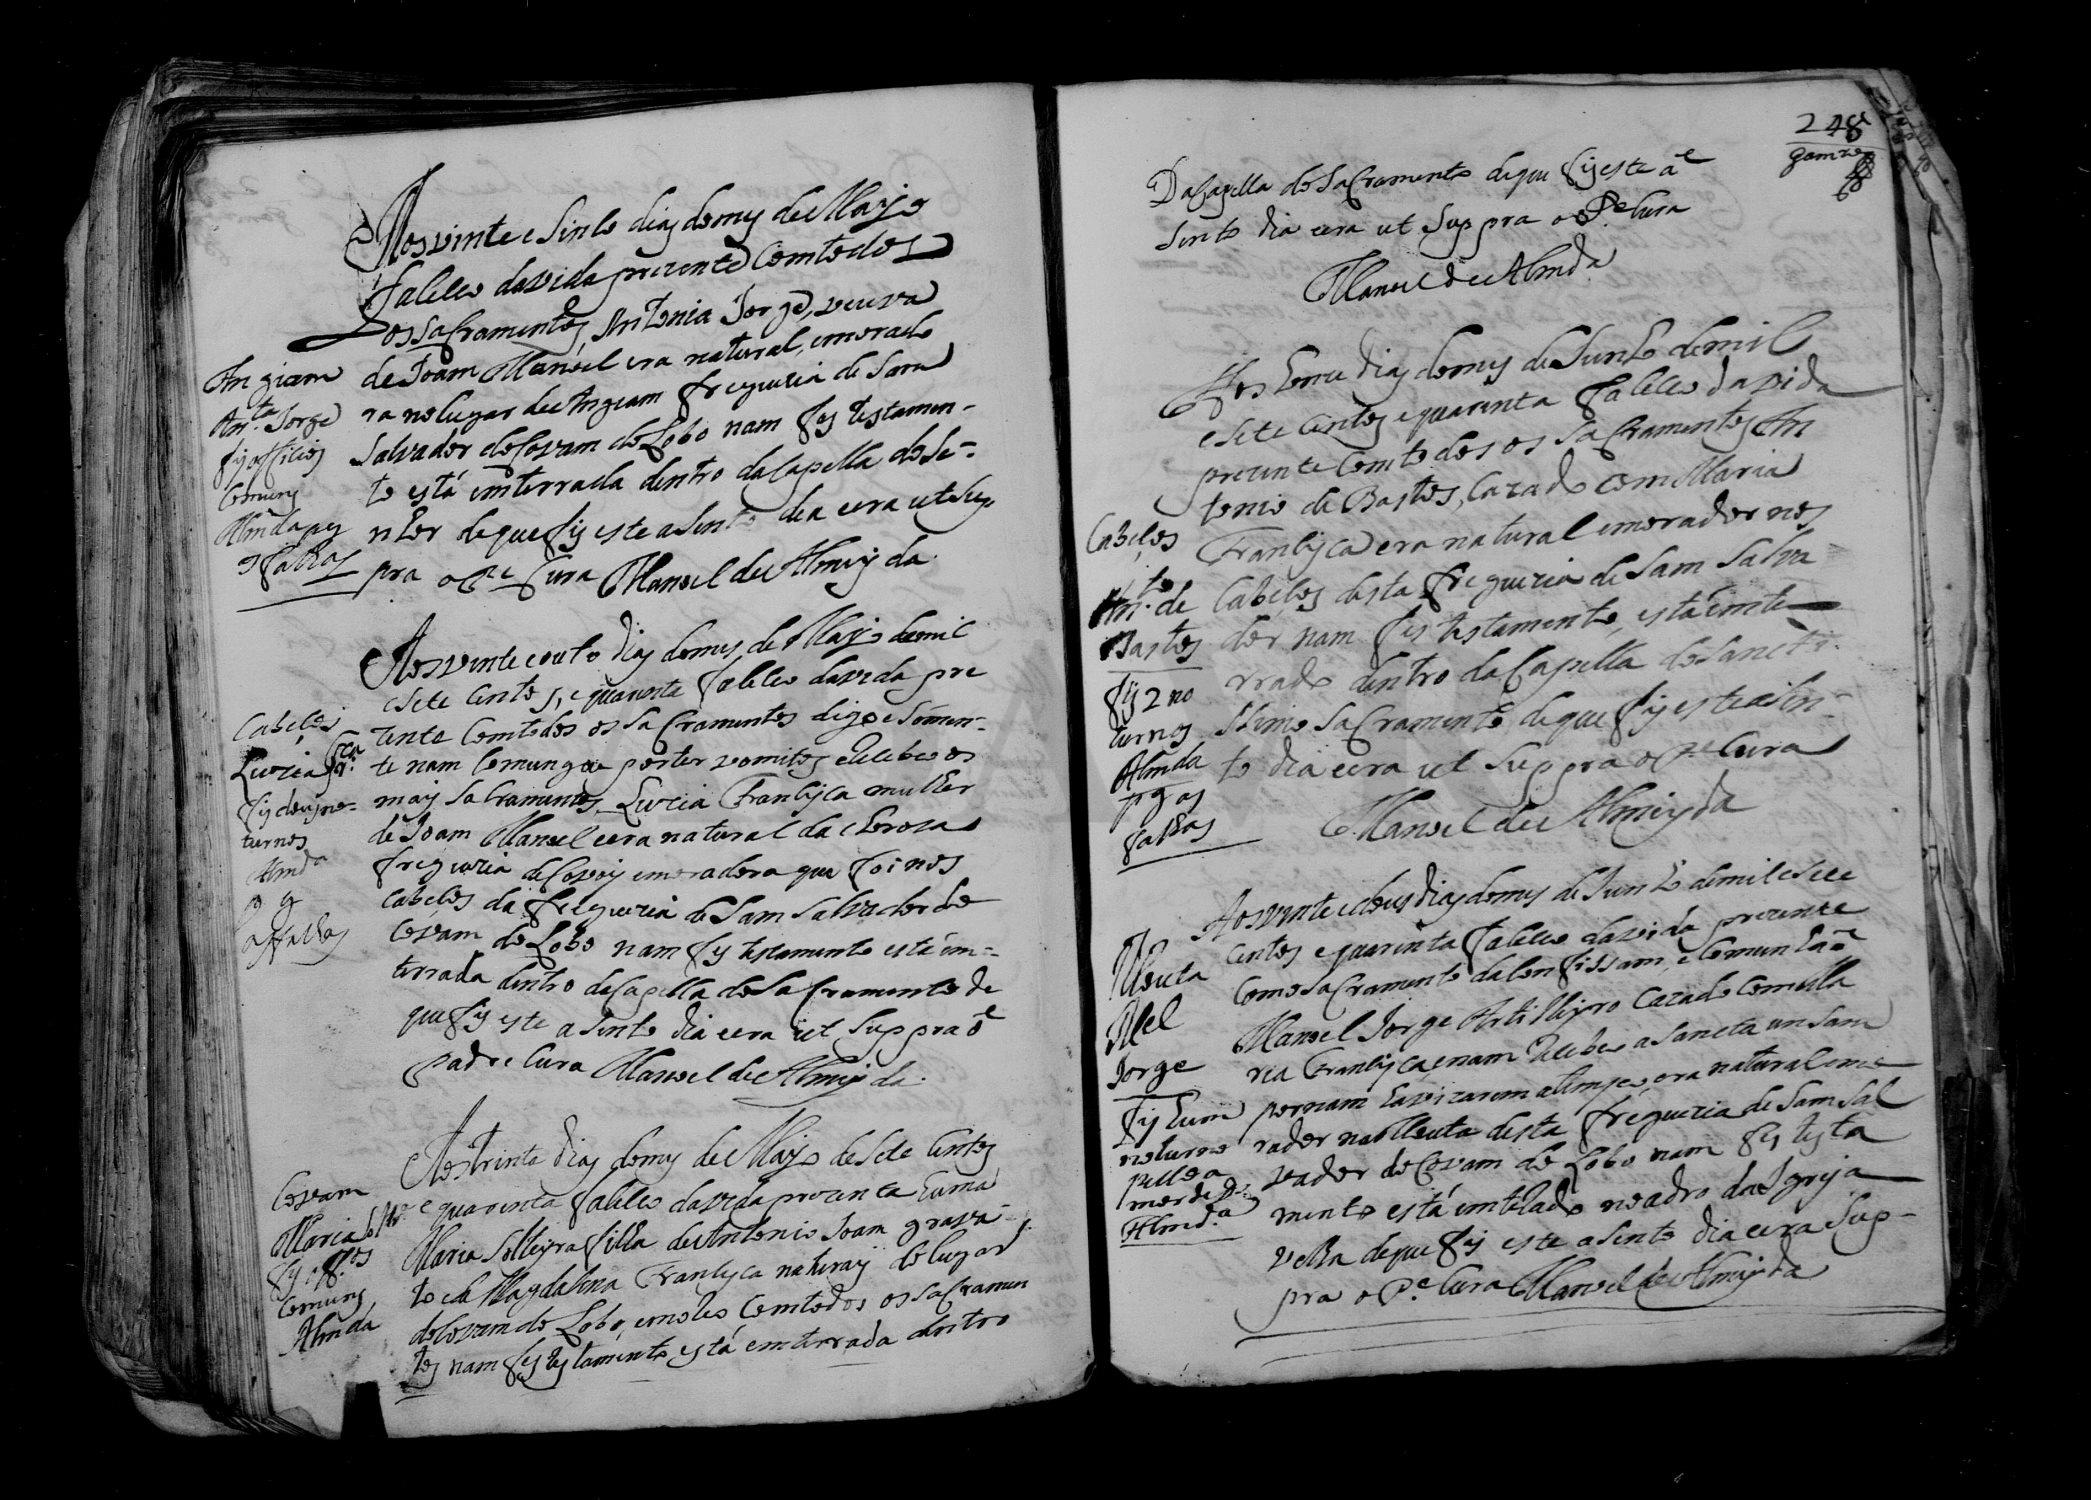 Aos vinte e sinto dias do mes de Mayo
faleleo da vida prezente com todos
os sacramentos, Antonia Jorge, veuva
de Joam Manoel era natural, e morado
ra no lugar de Angiam freguezia de Sam
Salvador do Covam do Lobo nam fes testamen-
to está emterrada dentro da Capella do Se-
nhor de que fis este asento dia e era ut sup
pra o Pe Cura Manoel de Almeyda
Angiam
Anta Jorge
fis officios
Comuns
Almda
Aos vinte e outo dias do mes de Mayo de mil
e sete centos, e quarenta faleleo da vida pre
zente com todos os sacramentos digo e somen-
te nam comungou por ter vomitos e recebeo os
mais sacramentos, Luzia Francisca mulher
de Joam Manoel e era natural da
freguezia de Covois e moradora que foi nos
Cabeços da freguezia de Sam Salvador do
Covam do Lobo nam fes testamento está em-
terrada dentro da Capella do Sacramento de
que fis este asento dia e era ut suppra o
padre Cura Manoel de Almeyda
Cabeços
Luzia Frca
fis dous no-
turnos
Almda
Aos trinta dias do mes de Mayo de sete centos
e quarenta faleleo da vida prezente huma
Maria Solteyra filha de Antonio Joam grava-
to e da Magdalena Francisca naturais do lugar
do Covam do Lobo, com todos os sacramen
tos nam fes testamento está emterrada dentro
Covam
Maria Soltra
fis offos
Comuns
Almda
248
Da Capella do Sacramento de que fis este a
sento dia e era ut suppra o Pe Cura
Manoel de Almda
Aos honze dias do mes de Junho de mil
e sete centos e quarenta faleleo da vida
prezente com todos os sacramentos An
tonio de Bastos, cazado com Maria
Francisca era natural e morador nos
Cabeços desta freguezia de Sam Salva
dor nam fes testamento, está emte
rrado dentro da Capella do Sancti
ssimo Sacramento de que fis este asen-
to dia e era ut suppra o Pe Cura
Manoel de Almeyda
Cabeços
Anto de
Bastos
fis 2 no
turnos
Almda
Aos vinte e dous dias do mes de Junho de mil e sete
centos e quarenta faleleo da vida prezente
com o sacramento da confissam, e comunhão
Manoel Jorge Artilheyro cazado com Ma
ria Francisca, e nam recebeo a sancta unsam
por nam havizarem a tempo, era natural e mo
rador na Mouta desta freguezia de Sam Sal
vador do Covam do Lobo nam fes testa
mento está emterrado no adro da Igreja
velha de que fis este asento dia e era sup-
pra o Pe. Cura Manoel de Almeyda
Mouta
Mel
Jorge
fis hum
noturno
Almda